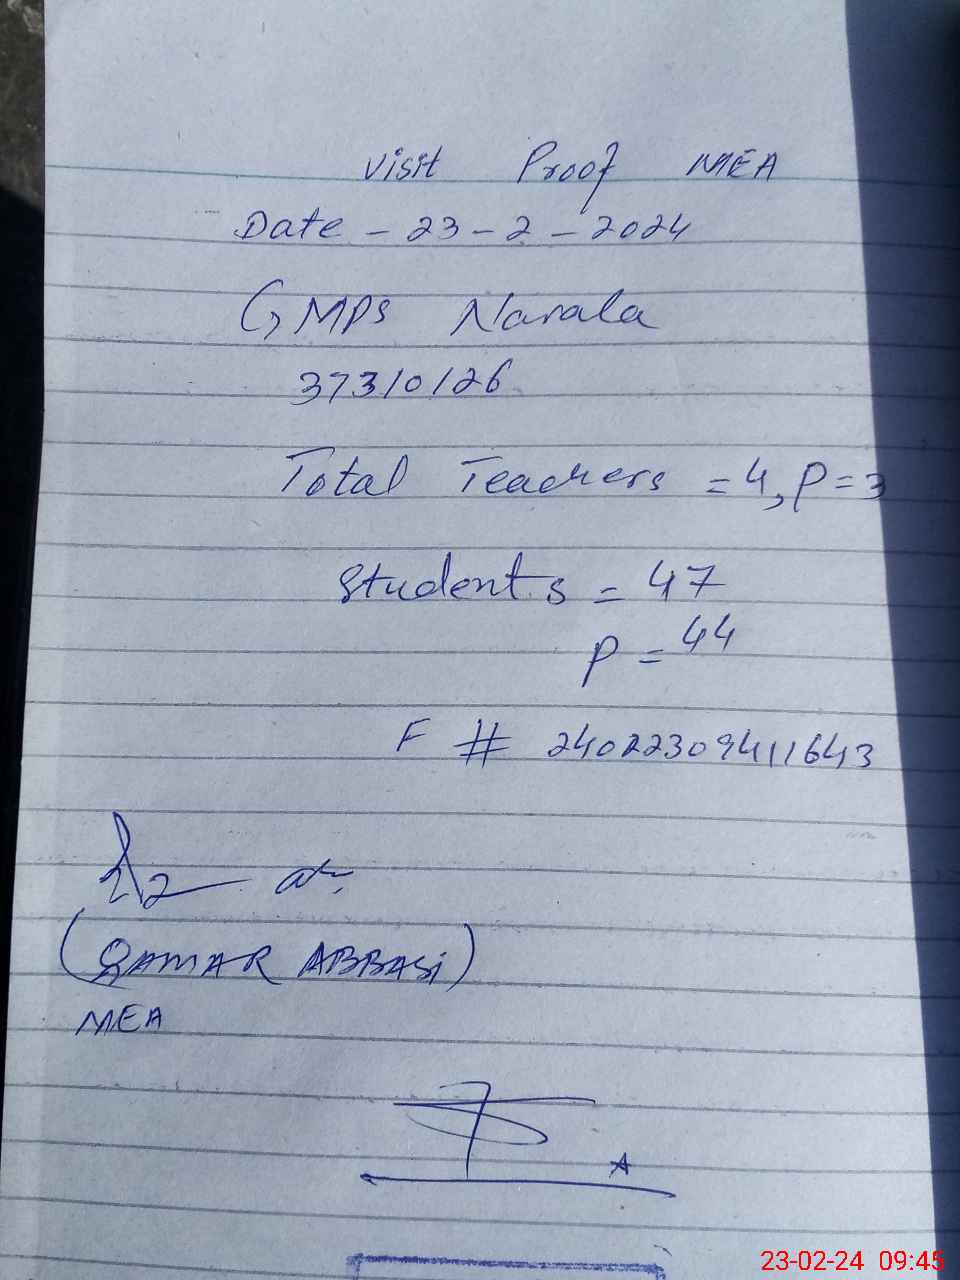 Visit Proof MEA
Date - 23 - 2 - 2024
GMPS Narala
37310126
Total Teachers = 4, P = 3
Students = 47
P = 44
F # 24022309411643
(QAMAR ABBASi)
MEA
23-02-24 09:45